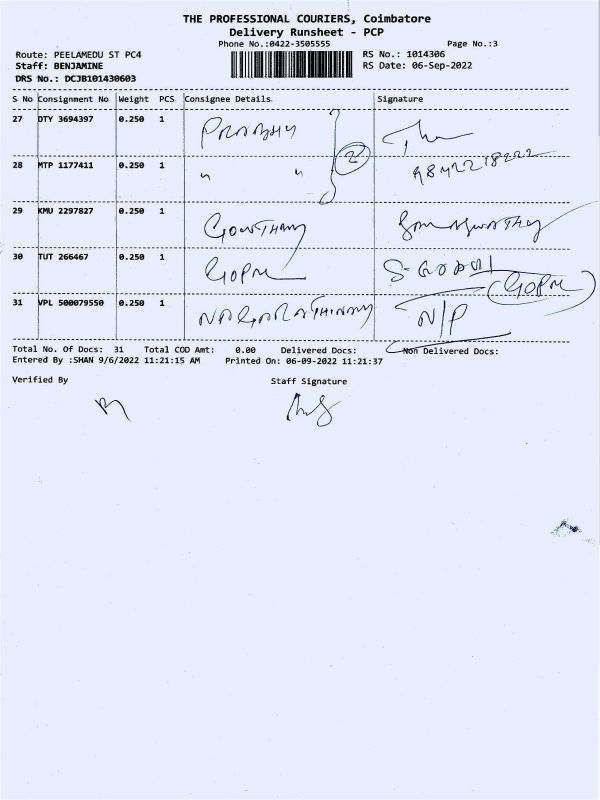 THE PROFESSIONAL COURIERS, Coimbatore
Delivery Runsheet - PCP
Phone No.:0422-3505555 Page No.:3
Route: PEELAMEDU ST PC4 RS No.: 1014306
Staff: BENJAMINE RS Date: 06-Sep-2022
DRS No.: DCJB101430603
S No Consignment No Weight PCS Consignee Details Signature
27 DTY 3694397 0.250 1 PRABHU
28 MTP 1177411 0.250 1 " " 2
29 KMU 2297827 0.250 1 GOWTHAM
30 TUT 266467 0.250 1 GOPAL GOPAL
31 VPL 500079550 0.250 1 N/P
Total No. Of Docs: 31 Total COD Amt: 0.00 Delivered Docs: Non Delivered Docs:
Entered By :SHAN 9/6/2022 11:21:15 AM Printed On: 06-09-2022 11:21:37
Verified By Staff Signature